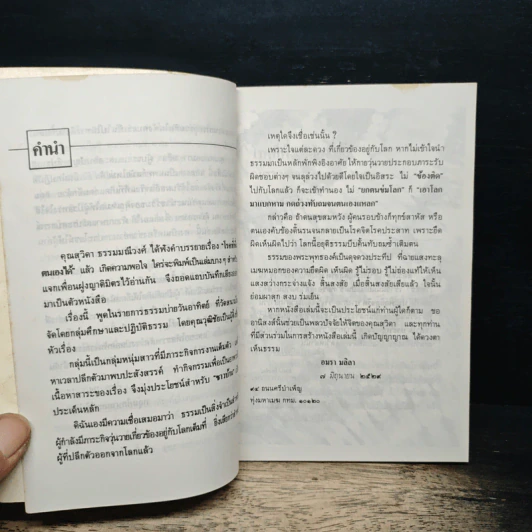 คำนำ
คุณสุวิดา ธรรมมณีวงศ์ ได้ฟังคำบรรยายเรื่อง
ตนเองได้" แล้ว เกิดความพอใจ ใคร่จะพิมพ์เป็นเล่มบาง ๆ สำหรับ
แจกเพื่อนฝูงญาติมิตรไว้อ่านกัน จึงถอดแถบบันทึกเสียงออก
มาเป็นตัวหนังสือ
เรื่องนี้ พูดในรายการธรรมบ่ายวันอาทิตย์ ที่วัด
จัดโดยกลุ่มศึกษาและปฏิบัติธรรม โดยคุณวุฒิชัยเป็นผู้
หัวเรื่อง
กลุ่มนี้เป็นกลุ่มหนุ่มสาวที่มีภาระกิจการงานเต็มตัว
หาเวลาปลีกตัวมาพบปะสังสรรค์ ทำกิจกรรมเพื่อเป็น
เนื้อหาสาระของเรื่อง จึงมุ่งประโยชน์สำหรับ
ประเด็นหลัก
ดิฉันเองมีความเชื่อเสมอมาว่า ธรรมเป็นสิ่งจำเป็น
ผู้กำลังมีภาระกิจวุ่นวายเกี่ยวข้องอยู่กับโลกเต็มที่ ยิ่ง
ผู้ที่ปลีกตัวออกจากโลกแล้ว
เหตุใดจึงเชื่อเช่นนั้น ?
เพราะใจแต่ละดวง ที่เกี่ยวข้องอยู่กับโลก หากไม่เข้าใจนำ
ธรรมมาเป็นหลักพักพิงอิงอาศัย ให้กายวุ่นวายประกอบภาระรับ
ผิดชอบต่างๆ จนลุล่วงไปด้วยดีโดยใจเป็นอิสระ ไม่ "ข้องติด"
ไปกับโลกแล้ว ก็จะเข้าทำนอง ไม่ "ยกตนข่มโลก" ก็ "เอาโลก
มาแบกหาม กดถ่วงทับถมจนตนเองแหลก"
กล่าวคือ ถ้าตนสุขสมหวัง ผู้คนรอบข้างก็ทุกข์สาหัส หรือ
ตนเองคับข้องดิ้นรนจนกลายเป็นโรคจิตโรคประสาท เพราะยึด
ผิดเห็นผิดไปว่า โลกนี้อยุติธรรมบีบคั้นทับถมซ้ำเติมตน
ธรรมของพระพุทธองค์เป็นดุจดวงประทีป ที่ฉายแสงทะลุ
เมฆหมอกของความยึดผิด เห็นผิด รู้ไม่รอบ รู้ไม่ถ่องแท้ให้เห็น
แสงสว่างกระจ่างแจ้ง สิ้นสงสัย เมื่อสิ้นสงสัยเสียแล้ว ใจนั้น
ย่อมผาสุก สงบ ร่มเย็น
หากหนังสือเล่มนี้จะเป็นประโยชน์แก่ท่านผู้ใดก็ตาม ขอ
อานิสงส์นั้นช่วยเป็นพลวปัจจัยให้จิตของคุณสุวิดา และทุกท่าน
ที่มีส่วนร่วมในการสร้างหนังสือเล่มนี้ เกิดปัญญาญาณ ได้ดวงตา
เห็นธรรม
อมรา มลิลา
๗ มิถุนายน ๒๕๒๙
๙๔ ถนนศรีบำเพ็ญ
ทุ่งมหาเมฆ กทม. ๑๐๑๒๐